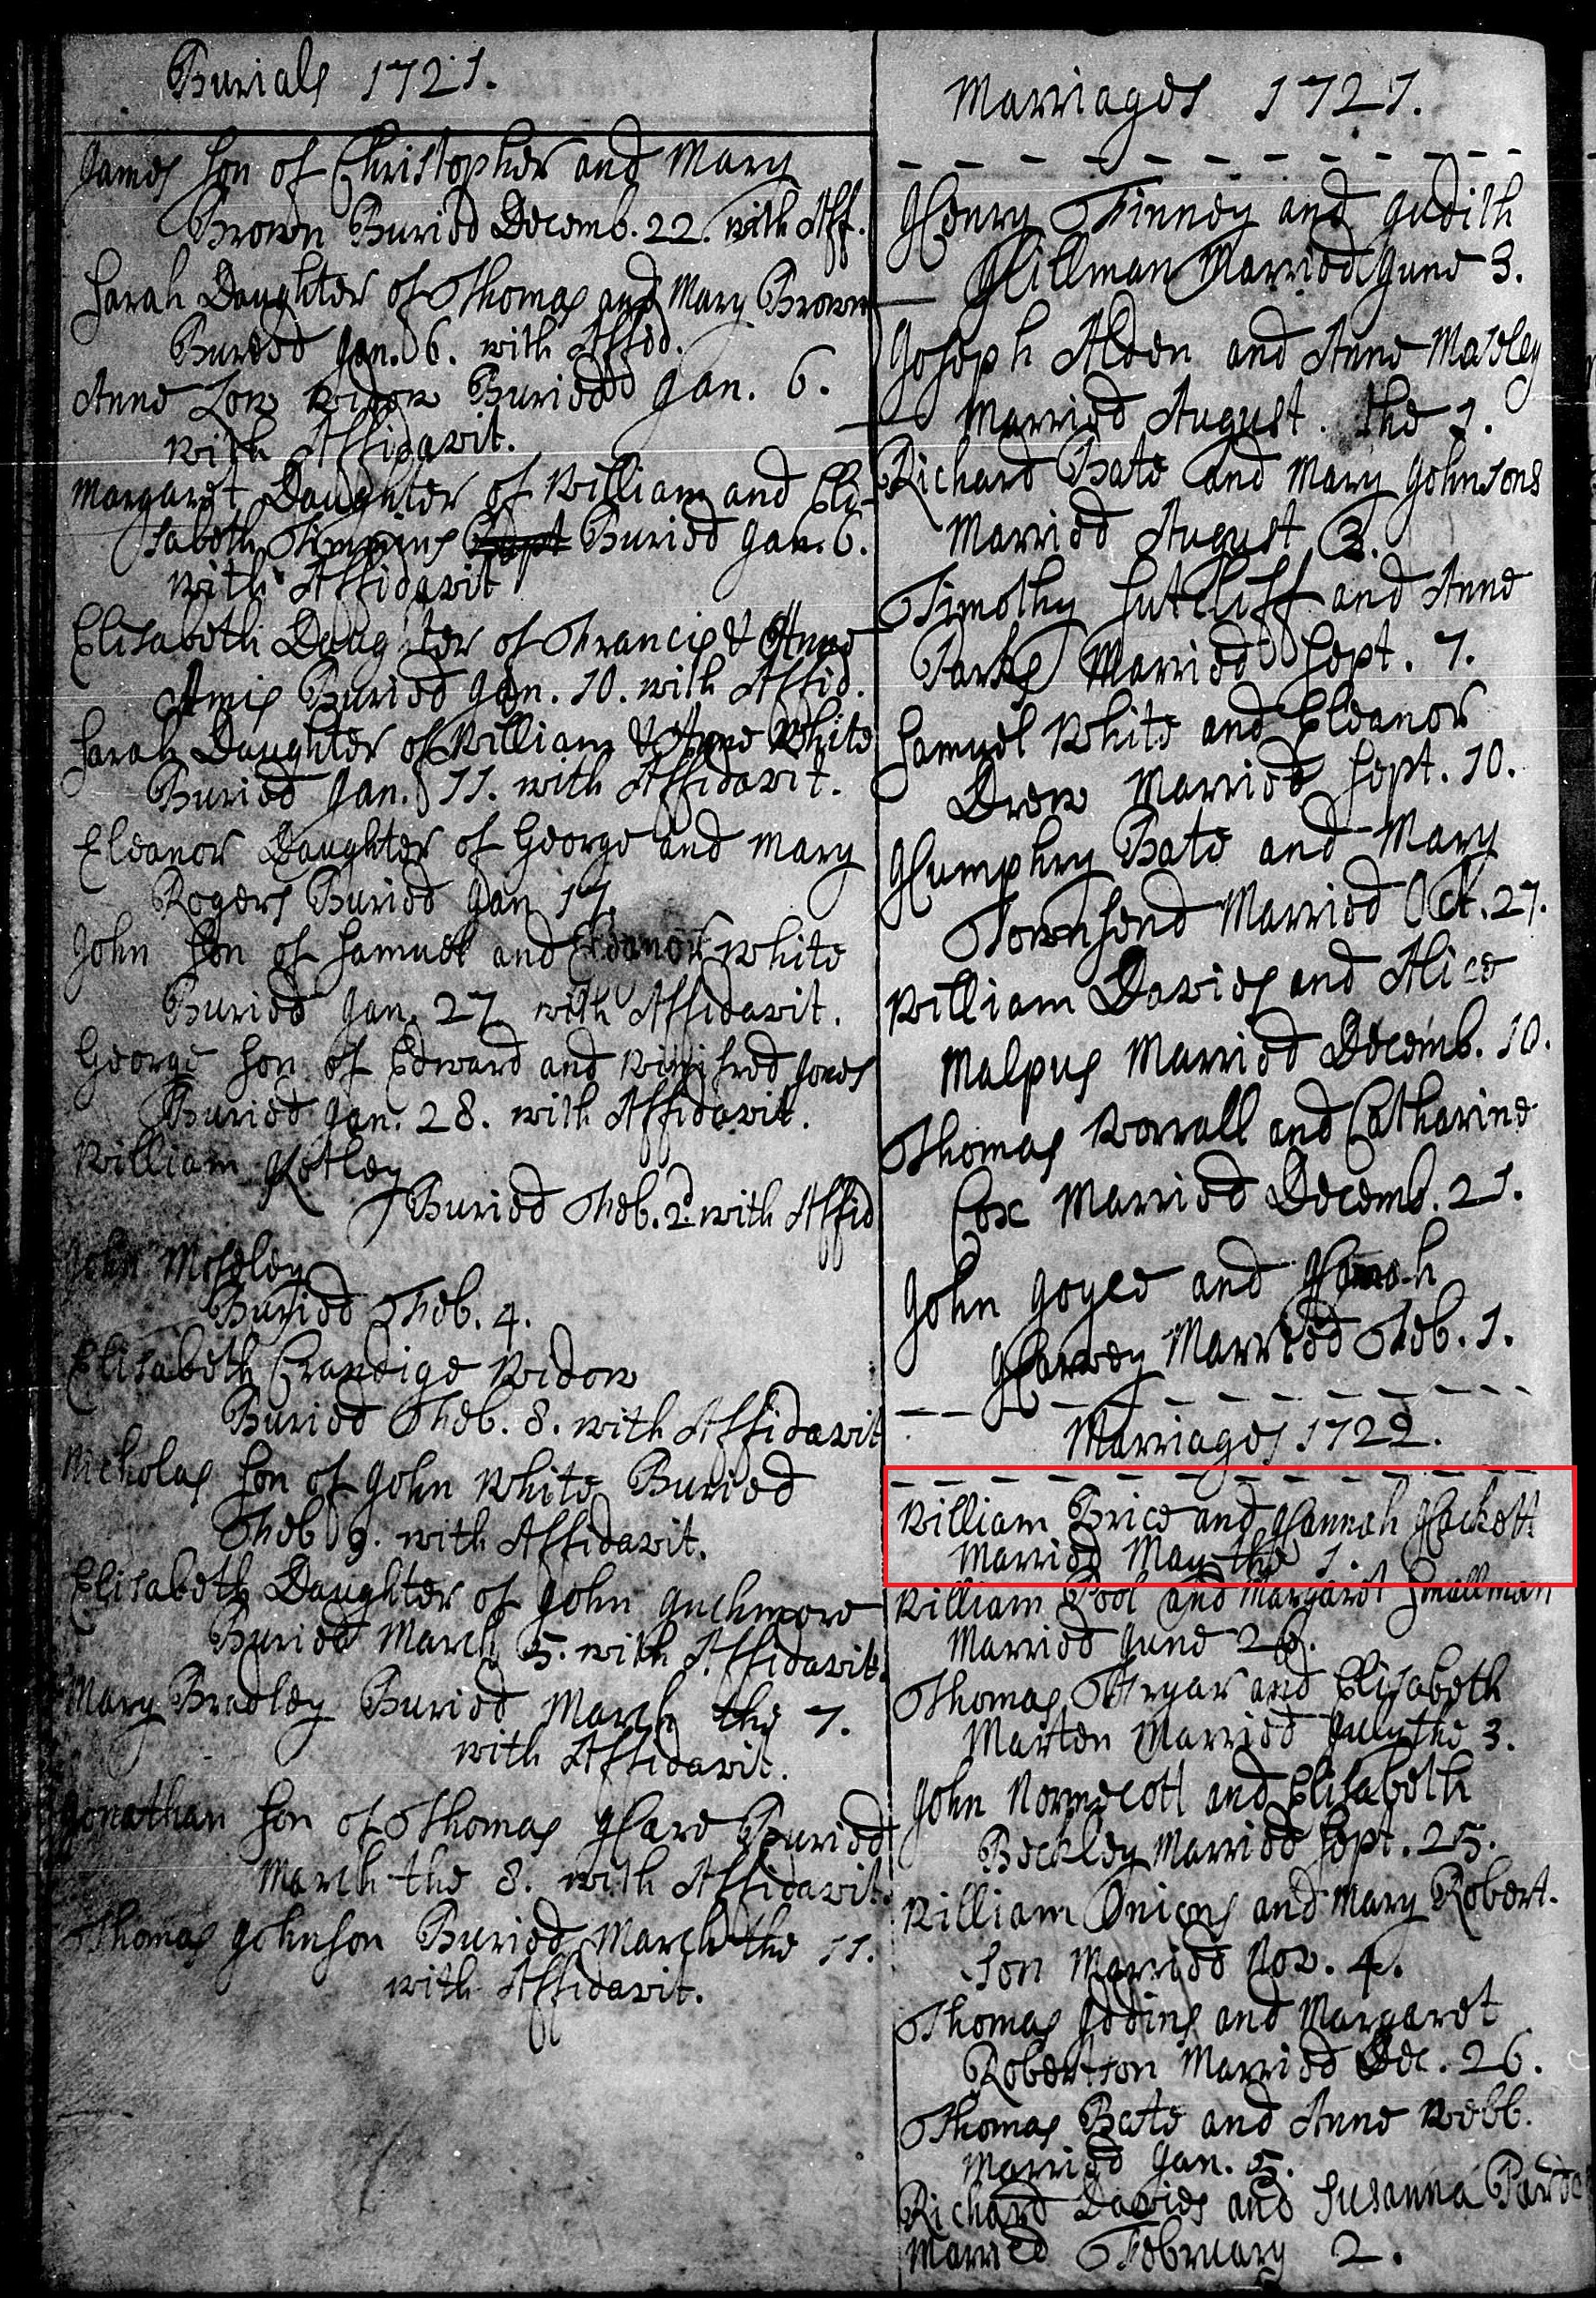 Burials 1721.
James Son of Christopher and Mary
Brown Buried Decemb. 22. with Aff.
Sarah Daughter of Thomas and Mary Brown
Buried Jan. 6. with Affid.
Anne Low widow Buried Jan. 6.
with Affidavit.
Margaret Daughter of William and Eli-
sabeth Timmins Bapt Buried Jan. 6.
with Affidavit
Elisabeth Daughter of Francis & Anne
Amis Buried Jan. 10. with Affid.
Sarah Daughter of William & Anne White
Buried Jan. 11. with Affidavit.
Eleanor Daughter of George and Mary
Rogers Buried Jan 17.
John Son of Samuel and Eleanor White
Buried Jan. 27 with Affidavit.
George Son of Edward and Winifred Jones
Buried Jan. 28. with Affidavit.
William
Buried Feb. 2d with Affid
John Moseley
Buried Feb. 4.
Elisabeth widow
Buried Feb. 8. with Affidavit
Nicholas Son of John White Buried
Feb 9. with Affidavit.
Elisabeth Daughter of John
Buried March 5. with Affidavit.
Mary Bradley Buried March the 7.
with Affidavit.
Jonathan Son of Thomas Hare Buried
March the 8. with Affidavit.
Thomas Johnson Buried March the 11.
with Affidavit.
Marriages 1721.
Henry Finney and Judith
Hillman Married June 3.
Joseph Alden and Anne
Married August. the 1.
Richard Bate and Mary Johnsons
Married August 3.
Timothy Sutcliff and Anne
Parks Married Sept. 7.
Samuel White and Eleanor
Drew Married Sept. 10.
Humphry Bate and Mary
Townsend Married Oct. 27.
William Davies and Alice
Malpus Married Decemb. 10.
Thomas Worrall and Catharine
Cox Married Decemb. 21.
John Joyce and
Harvey Married Feb. 1.
Marriages 1722.
William Price and Hannah Hackett
Married May the 1.
William Pool and Margaret Smallman
Married June
Thomas Fryar and Elisabeth
Marten Married July the 3.
John Normecott and Elisabeth
Beckley Married Sept. 25.
William Onions and Mary Robert-
son Married Nov. 4.
Thomas Iddins and Margaret
Robertson Married Dec. 26.
Thomas Bate and Anne Webb.
Married Jan. 5.
Richard Davies and Susanna
Married February 2.